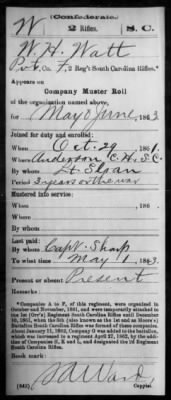 (Confederate.)
W 2 Rifles. S. C.
W. H. Watt
Pvt, Co. F, 2 Reg't South Carolina Rifles.*
Appears on
Company Muster Roll
of the organization named above,
for May & June, 1863.
Joined for duty and enrolled:
When Oct. 29, 1861.
Where Anderson C. H. S. C.
By whom Lt. Sloan
Period 3 years or the war
Mustered into service:
When , 186 .
Where
By whom
Last paid:
By whom Capt. Sharp
To what time May 1, 1863.
Present or absent Present
Remarks:
*Companies A to F, of this regiment, were organized in
October and November, 1861, and were temporarily attached
to the 1st (Orr's) Regiment South Carolina Rifles until December
Battalion South Carolina Rifles was formed of these companies.
About January 21, 1862, Company G was added to the battalion,
which was increased to a regiment April 27, 1862, by the addition
of Companies H, I and K, and designated the 2d Regiment
South Carolina Rifles.
Book mark:
(642) S A Ward
Copyist.